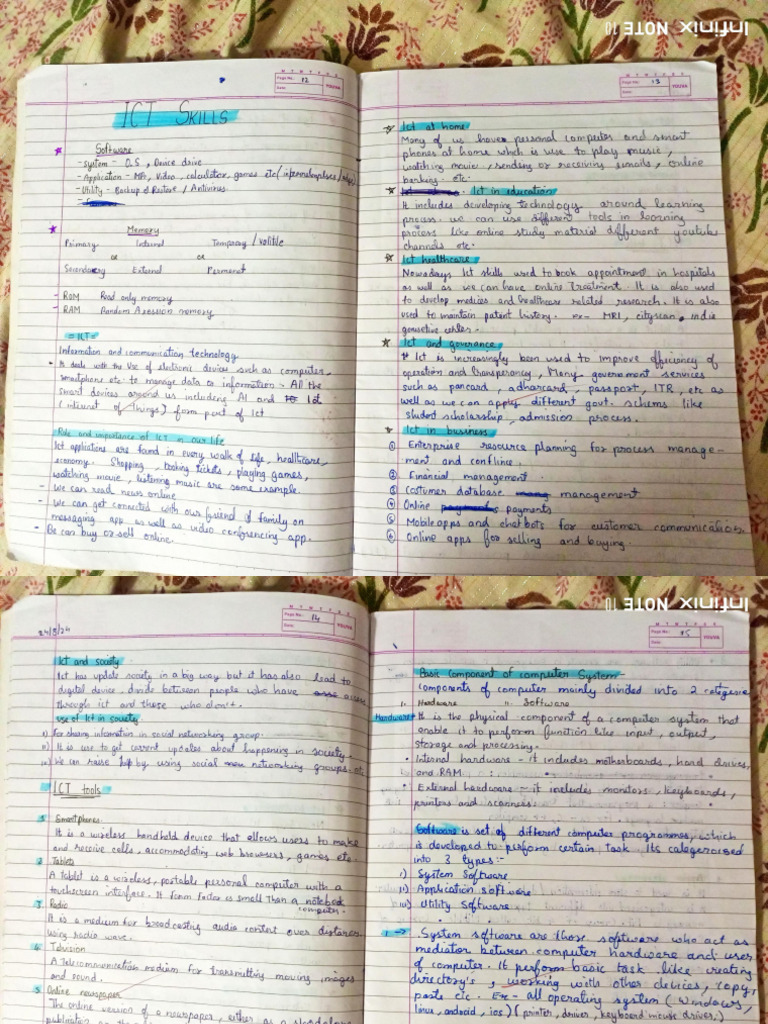 Infinix NOTE 10
M T W T F S S
Page No.: 12
Date:
YOUVA
ICT SKILLS
Software
- System - O.S, Device drive
- Application - MP, Video, calculator, games etc (
- Utility - Backup & Restore / Antivirus.
Memory
Primary Internal Temporary / volitile
or or
Secondary External Permanet
- ROM Read only memory
- RAM Random Axession memory
= ICT =
Information and communication technology
- It deals with the Use of electronic devices such as computer,
smartphone etc. to manage data or information. All the
smart devices around us including AI and Iot
(internet of things) form part of Ict
Role and importance of ICT in our life
Ict applications are found in every walk of life, healthcare,
economy. Shopping, booking tickets, playing games,
watching movie, listening music are some example.
- We can read news online
- We can get connected with our friend of family on
messaging app as well as video conferencing app.
- Be can buy or sell online.
M T W T F S S
Page No.: 13
Date:
YOUVA
Ict at home
Many of us have personal computer and smart
phones at home which is use to play music,
watching movie, sending or receiving emails, online
banking etc.
Ict in education
It includes developing technology around learning
process. we can use different tools in learning
process like online study material different youtube
channels etc.
Ict healthcare
Nowadays Ict skills used to book appointment in hospitals
as well as we can have online Treatment. It is also used
to develop medices and healthcare related research. It is also
used to maintain patent history. ex- MRI, cityscan,
Ict and goverance
Ict is increasingly been used to improve efficiency of
operation and transperancy, Many government services
such as pancard, adharcard, passport, ITR, etc as
well as we can apply different govt. schems like
studet scholarship, admission process.
Ict in business
① Enterprise resource planning for process manage-
ment and conflince.
② Financial management.
③ Costumer database management
④ Online payments
⑤ Mobile apps and chat bots for customer communication.
⑥ Online apps for selling and buying.
Infinix NOTE 10
24/8/24
M T W T F S S
Page No.: 14
Date:
YOUVA
Ict and society
Ict has update society in a big way but it has also lead to
digital device, divide between people who have access
through ict and those who don't.
Use of Ict in society
i) For sharing information in social networking group.
ii) It is use to get current updates about happening in society.
iii) We can raise help by using social networking groups. etc
ICT tools
1 Smartphones
It is a wireless handheld device that allows users to make
and receive cells, accommodating web browsers, games etc.
2 Tablets
A Tablet is a wireless, portable personal computer with a
touchscreen interface. It form factor is small Than a notebook
computer.
3 Radio
It is a medium for broadcasting audio content over distances
using radio wave.
4. Television
A Telecommunication medium for transmitting moving images
and sound.
5 Online newspaper
The online version of a newspaper, either as a standalone
M T W T F S S
Page No.: 15
Date:
YOUVA
Basic component of computer System -
Components of computer mainly divided into 2 categerie
i. Hardware ii. Software
Hardware It is the physical component of a computer system that
enable it to perform function like input, output,
storage and processing.
• Internal hardware - it includes motherboards, hard drives,
and RAM.
• External hardware - it includes monitors, keyboards,
printers and scanners.
Software is set of different computer programmes, which
is developed to perform certain task. Its categeroised
into 3 types :-
i) System Software
ii) Application software
iii) Utility Software
1 → System software are those software who act as
mediator between computer hardware and user
of computer. It perform basic task like creating
directory's, working with other devices, copy,
paste etc. Ex - all operating system (Windows,
linux, android, ios) (printer, driver, keyboard mouse driver,)